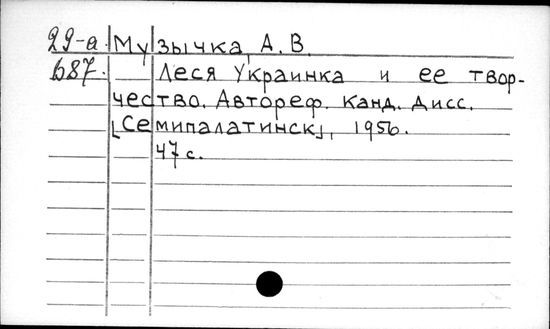 29-а Музычка, А. В.
687. Леся Украинка и ее твор-
чество. Автореф. Канд. Дисс.
[Семипалатинск], 1956.
47 с.